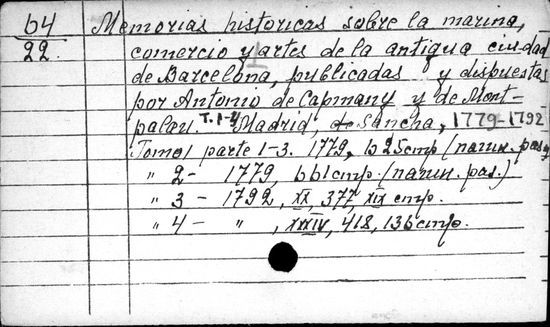 64
22.
Memorias historicas sobre la marina,
comercio y artes de la antigua ciudad
de Barcelona, publicadas y dispuestas
por Antonio de Capmany y de Mont-
palau. T. 1-4 Madrid, de Sancha, 1779-1792
Tomo 1 parte 1-3. 1779, стр. (палин. pas.)
" 2 - 1779, 661 стр. (палин. pas.)
" 3 - 1792, XX, 377, XIX стр.
" 4 - " , XXXIV, 418, 136 стр.